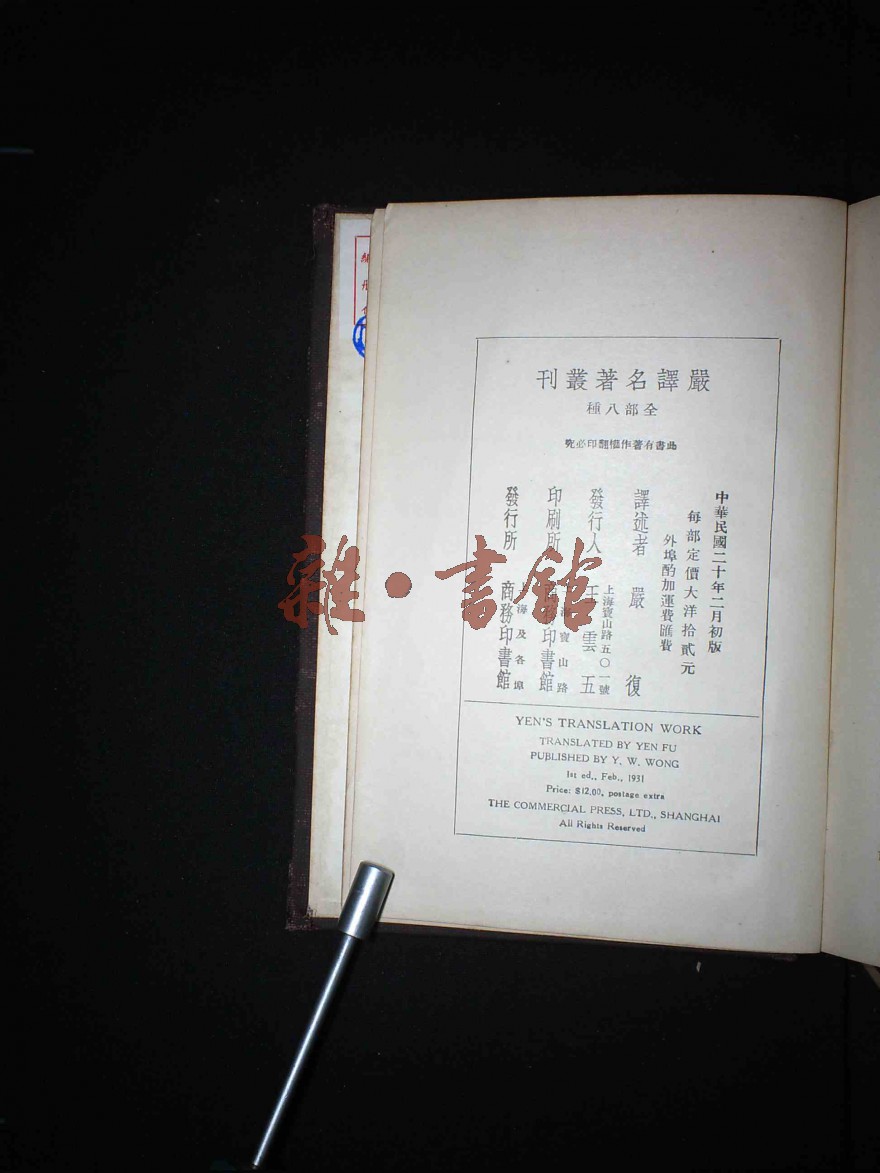 嚴譯名著叢刊
全部八種
此書有著作權翻印必究
中華民國二十年二月初版
每部定價大洋拾貳元
外埠酌加運費匯費
譯述者 嚴復
發行人 王雲五
上海寶山路五〇一號
印刷所 商務印書館
上海寶山路
發行所 商務印書館
上海及各埠
YEN'S TRANSLATION WORK
TRANSLATED BY YEN FU
PUBLISHED BY Y. W. WONG
1st ed., Feb., 1931
Price: $12.00, postage extra
THE COMMERCIAL PRESS, LTD., SHANGHAI
All Rights Reserved
雜·書館